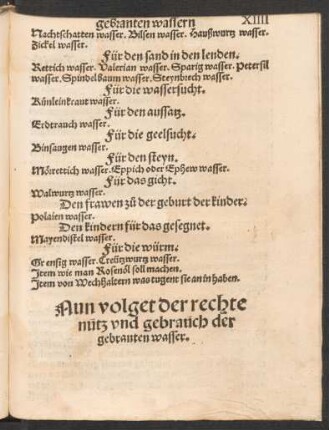 gebranten wassern XIIII
Nachtschatten wasser. Bilsen wasser. Haußwurtz wasser.
Zickel wasser.
Für den sand in den lenden.
Rettich wasser. Valerian wasser. Sparig wasser. Petersil
wasser. Spindelbaum wasser. Steynbrech wasser.
Für die wassersucht.
Künleinkraut wasser.
Für den aussatz.
Erdtrauch wasser.
Für die geelsucht.
Binsaugen wasser.
Für den steyn.
Mörettich wasser. Eppich oder Ephew wasser.
Für das gicht.
Walwurtz wasser.
Den frawen zů der geburt der kinder.
Polaien wasser.
Den kindern für das gesegnet.
Mayendistel wasser.
Für die würm.
Grensig wasser. Creützwurtz wasser.
Item wie man Rosenöl soll machen.
Item von Wechhaltern was tugent sie an in haben.
Nun volget der rechte
nütz vnd gebrauch der
gebranten wasser.